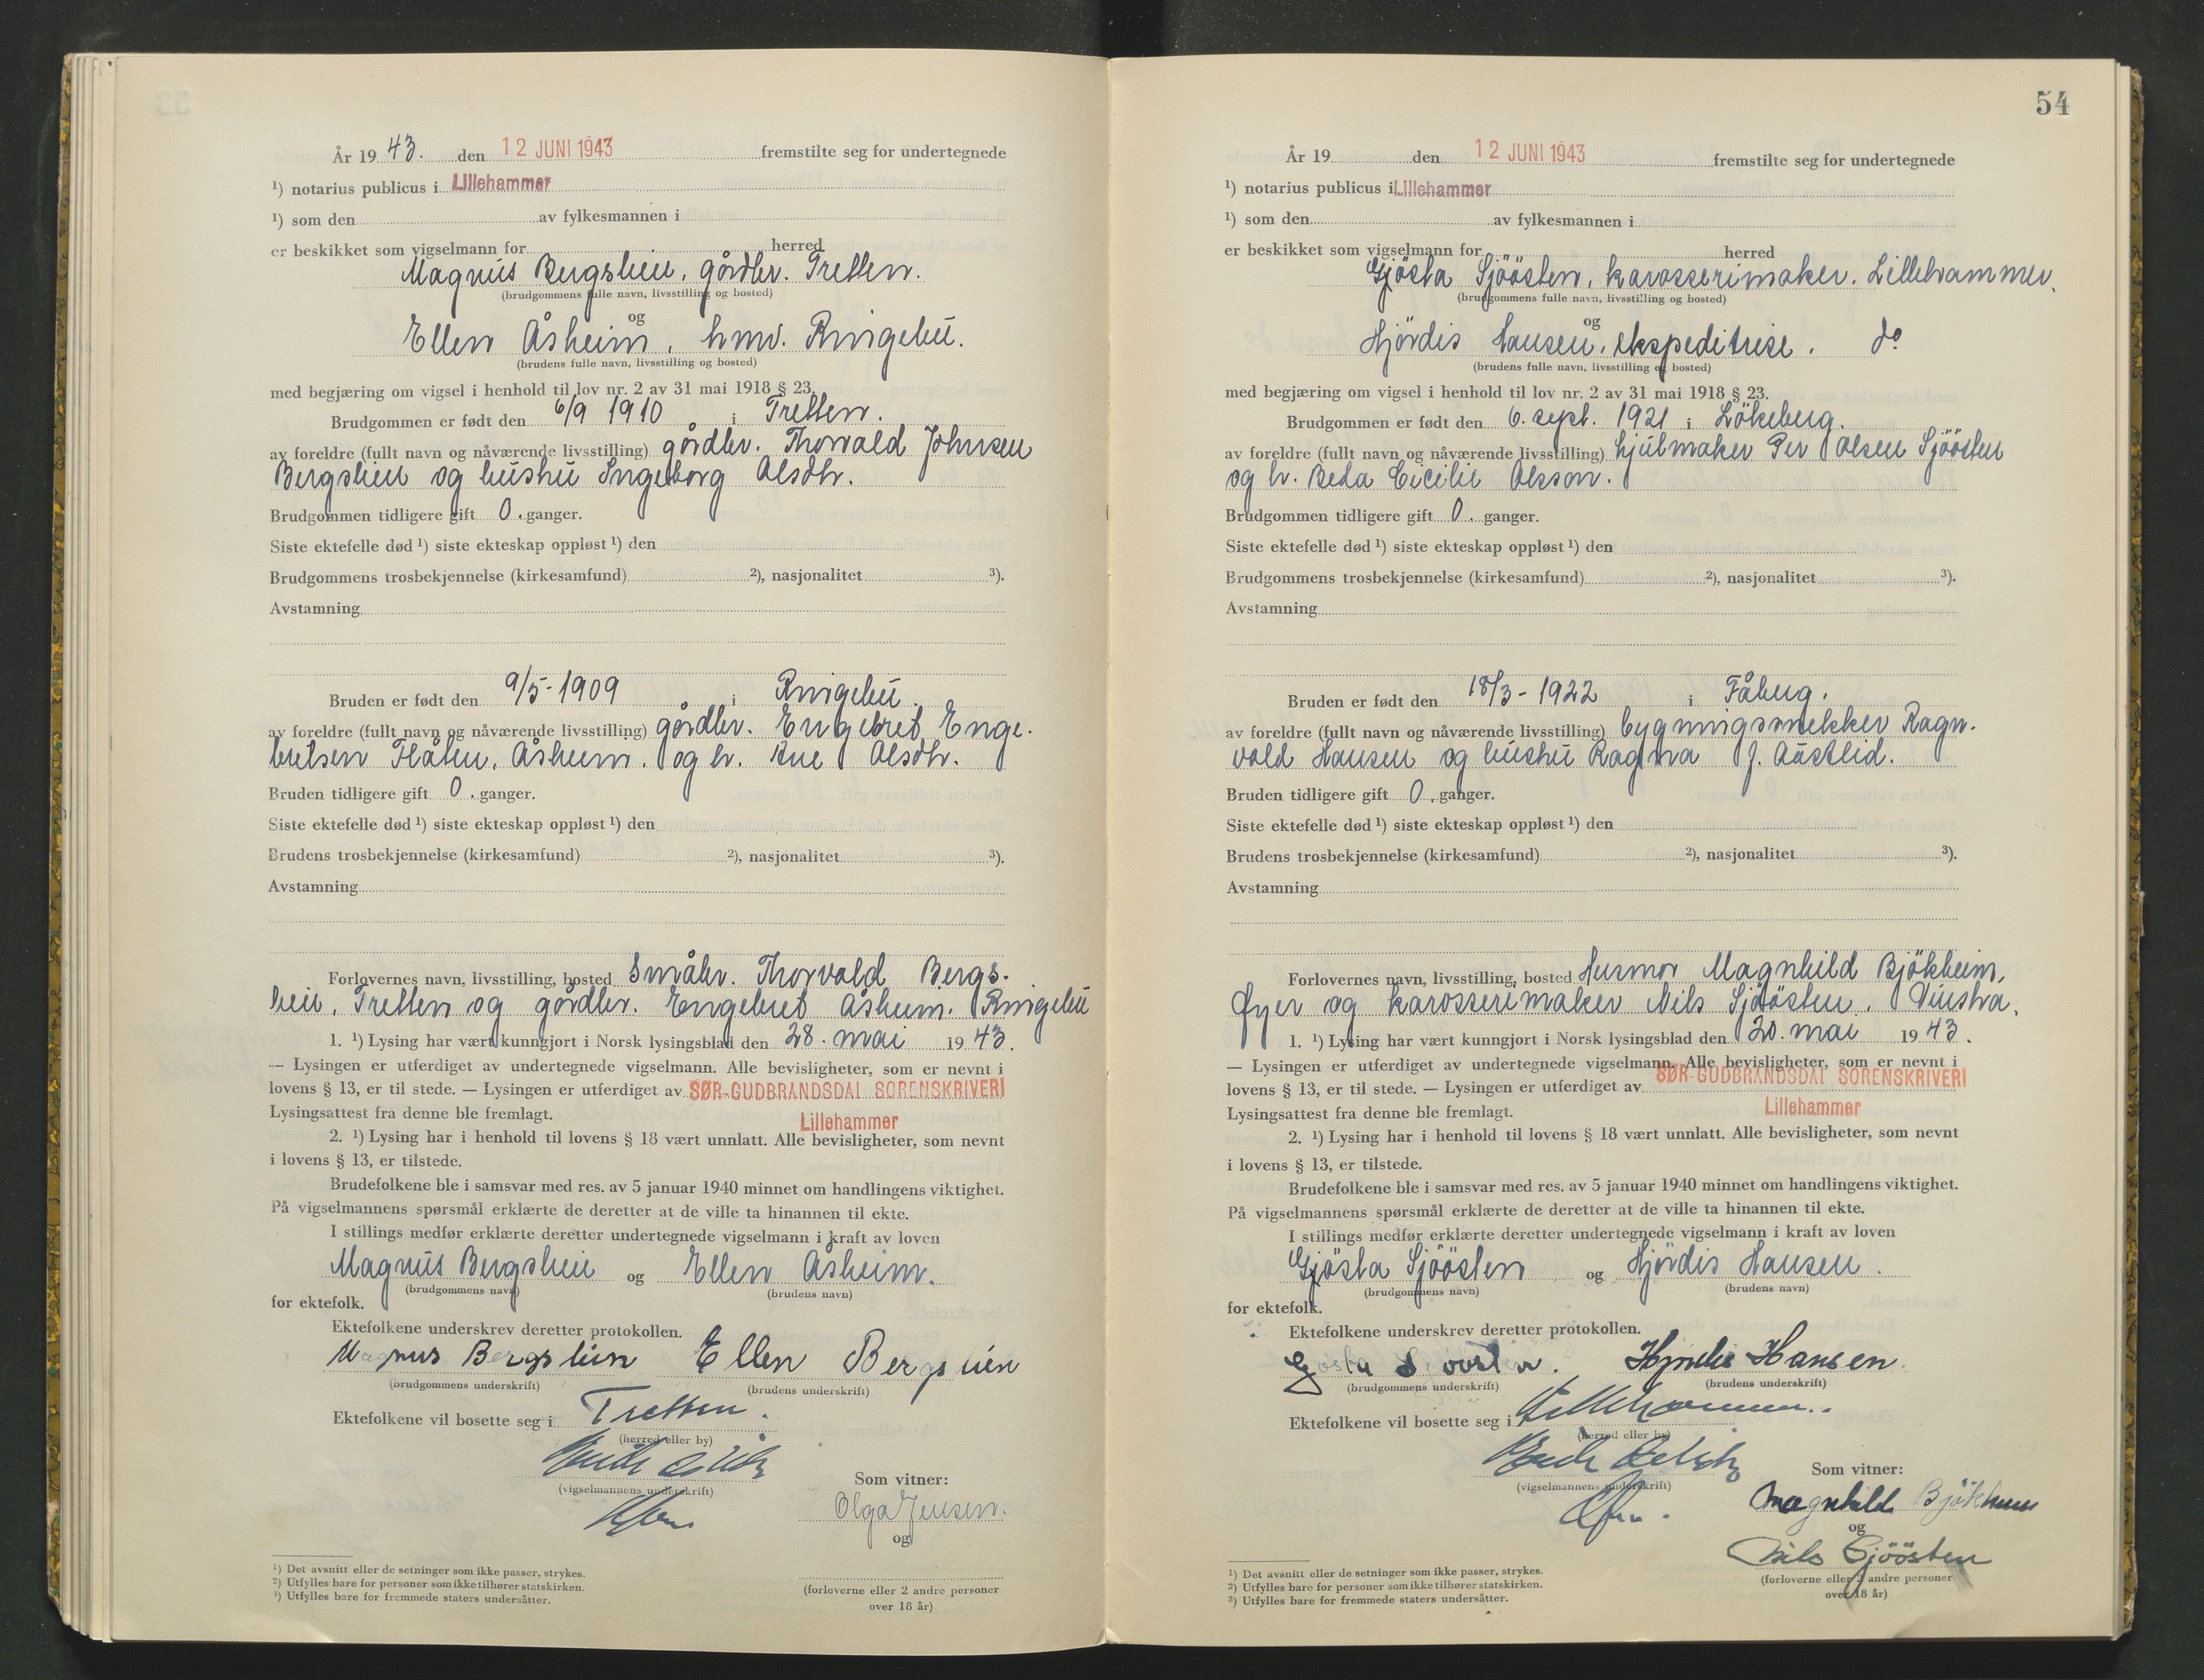 År 19 43. den 12 JUNI 1943 fremstilte seg for undertegnede
¹) notarius publicus i Lillehammer
¹) som den av fylkesmannen i
er beskikket som vigselmann for herred
Magnus Bergslien, gårdbr. Tretten.
(brudgommens fulle navn, livsstilling og bosted)
og
Ellen Åsheim, hmd. Ringebu.
(brudens fulle navn, livsstilling og bosted)
med begjæring om vigsel i henhold til lov nr. 2 av 31 mai 1918 § 23.
Brudgommen er født den 6/9 1910 i Tretten.
av foreldre (fullt navn og nåværende livsstilling) gårdbr. Thorvald Johnsen
Bergslien og hustru Ingeborg Olsdtr.
Brudgommen tidligere gift 0. ganger.
Siste ektefelle død ¹) siste ekteskap oppløst ¹) den
Brudgommens trosbekjennelse (kirkesamfund) ²), nasjonalitet ³).
Avstamning
Bruden er født den 9/5-1909 i Ringebu.
av foreldre (fullt navn og nåværende livsstilling) gårdbr. Engebret Enge-
bretsen Flåten, Åsheim. og h. Olsdtr.
Bruden tidligere gift 0. ganger.
Siste ektefelle død ¹) siste ekteskap oppløst ¹) den
Brudens trosbekjennelse (kirkesamfund) ²), nasjonalitet ³).
Avstamning
Forlovernes navn, livsstilling, bosted Småbr. Thorvald Bergs-
lien, Tretten og gårdbr. Engebret Åsheim. Ringebu
1. ¹) Lysing har vært kunngjort i Norsk lysingsblad den 28. mai 19 43.
— Lysingen er utferdiget av undertegnede vigselmann. Alle bevisligheter, som er nevnt i
lovens § 13, er til stede. — Lysingen er utferdiget av SØR-GUDBRANDSDAL SORENSKRIVERI
Lysingsattest fra denne ble fremlagt. Lillehammer
2. ¹) Lysing har i henhold til lovens § 18 vært unnlatt. Alle bevisligheter, som nevnt
i lovens § 13, er tilstede.
Brudefolkene ble i samsvar med res. av 5 januar 1940 minnet om handlingens viktighet.
På vigselmannens spørsmål erklærte de deretter at de ville ta hinannen til ekte.
I stillings medfør erklærte deretter undertegnede vigselmann i kraft av loven
Magnus Bergslien og Ellen Åsheim.
(brudgommens navn) (brudens navn)
for ektefolk.
Ektefolkene underskrev deretter protokollen.
Magnus Bergslien Ellen Bergslien
(brudgommens underskrift) (brudens underskrift)
Ektefolkene vil bosette seg i Tretten.
(herred eller by)
(vigselmannens underskrift)
Som vitner:
Olga Jensen.
og
(forloverne eller 2 andre personer
over 18 år)
¹) Det avsnitt eller de setninger som ikke passer, strykes.
²) Utfylles bare for personer som ikke tilhører statskirken.
³) Utfylles bare for fremmede staters undersåtter.
54
År 19 den 12 JUNI 1943 fremstilte seg for undertegnede
¹) notarius publicus i Lillehammer
¹) som den av fylkesmannen i
er beskikket som vigselmann for herred
Gjösta Sjöösten, karosserimaker. Lillehammer.
(brudgommens fulle navn, livsstilling og bosted)
og
Hjördis Hansen, ekspeditrise. do
(brudens fulle navn, livsstilling og bosted)
med begjæring om vigsel i henhold til lov nr. 2 av 31 mai 1918 § 23.
Brudgommen er født den 6. sept. 1921 i Lökeberg.
av foreldre (fullt navn og nåværende livsstilling) hjulmaker Per Olsen Sjöösten
og h. Beda Cicilie Olsson.
Brudgommen tidligere gift 0. ganger.
Siste ektefelle død ¹) siste ekteskap oppløst ¹) den
Brudgommens trosbekjennelse (kirkesamfund) ²), nasjonalitet ³).
Avstamning
Bruden er født den 18/3-1922 i Fåberg.
av foreldre (fullt navn og nåværende livsstilling) bygningssnekker Ragn-
vald Hansen og hustru Ragna J. Austlid.
Bruden tidligere gift 0. ganger.
Siste ektefelle død ¹) siste ekteskap oppløst ¹) den
Brudens trosbekjennelse (kirkesamfund) ²), nasjonalitet ³).
Avstamning
Forlovernes navn, livsstilling, bosted Husmor Magnhild Bjökheim,
Øyer og karosserimaker Nils Sjöösten. Vinstra.
1. ¹) Lysing har vært kunngjort i Norsk lysingsblad den 20. mai 19 43.
— Lysingen er utferdiget av undertegnede vigselmann. Alle bevisligheter, som er nevnt i
lovens § 13, er til stede. — Lysingen er utferdiget av SØR-GUDBRANDSDAL SORENSKRIVERI
Lysingsattest fra denne ble fremlagt. Lillehammer
2. ¹) Lysing har i henhold til lovens § 18 vært unnlatt. Alle bevisligheter, som nevnt
i lovens § 13, er tilstede.
Brudefolkene ble i samsvar med res. av 5 januar 1940 minnet om handlingens viktighet.
På vigselmannens spørsmål erklærte de deretter at de ville ta hinannen til ekte.
I stillings medfør erklærte deretter undertegnede vigselmann i kraft av loven
Gjösta Sjöösten og Hjördis Hansen.
(brudgommens navn) (brudens navn)
for ektefolk.
Ektefolkene underskrev deretter protokollen.
Gösta Sjöösten. Hjördis Hansen.
(brudgommens underskrift) (brudens underskrift)
Ektefolkene vil bosette seg i Lillehammer.
(herred eller by)
(vigselmannens underskrift)
Som vitner:
Magnhild Bjökheim
og
Nils Sjöösten
(forloverne eller 2 andre personer
over 18 år)
¹) Det avsnitt eller de setninger som ikke passer, strykes.
²) Utfylles bare for personer som ikke tilhører statskirken.
³) Utfylles bare for fremmede staters undersåtter.